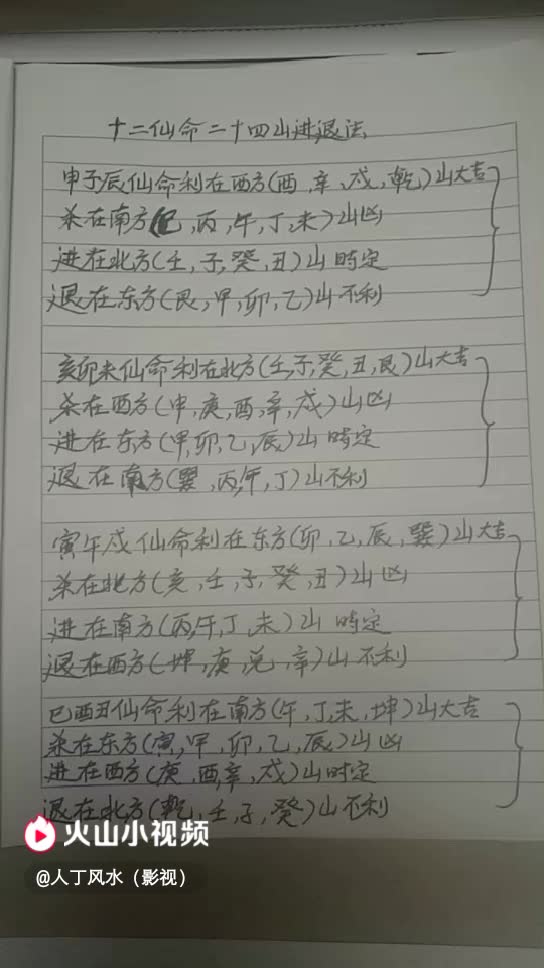 十二仙命二十四山进退法
申子辰仙命利在西方(酉,辛,戌,乾)山大吉
杀在南方(巳,丙,午,丁,未)山凶
进在北方(壬,子,癸,丑)山 時定
退在东方(艮,甲,卯,乙)山不利
亥卯未仙命利在北方(壬,子,癸,丑,艮)山大吉
杀在西方(申,庚,酉,辛,戌)山凶
进在东方(甲,卯,乙,辰)山 時定
退在南方(巽,丙,午,丁)山不利
寅午戌仙命利在东方(卯,乙,辰,巽)山大吉
杀在北方(亥,壬,子,癸,丑)山凶
进在南方(丙,午,丁,未)山 時定
退在西方(坤,庚,兑,辛)山不利
巳酉丑仙命利在南方(午,丁,未,坤)山大吉
杀在东方(寅,甲,卯,乙,辰)山凶
进在西方(庚,酉,辛,戌)山时定
退在北方(乾,壬,子,癸)山不利
火山小视频
@人丁风水（影视）